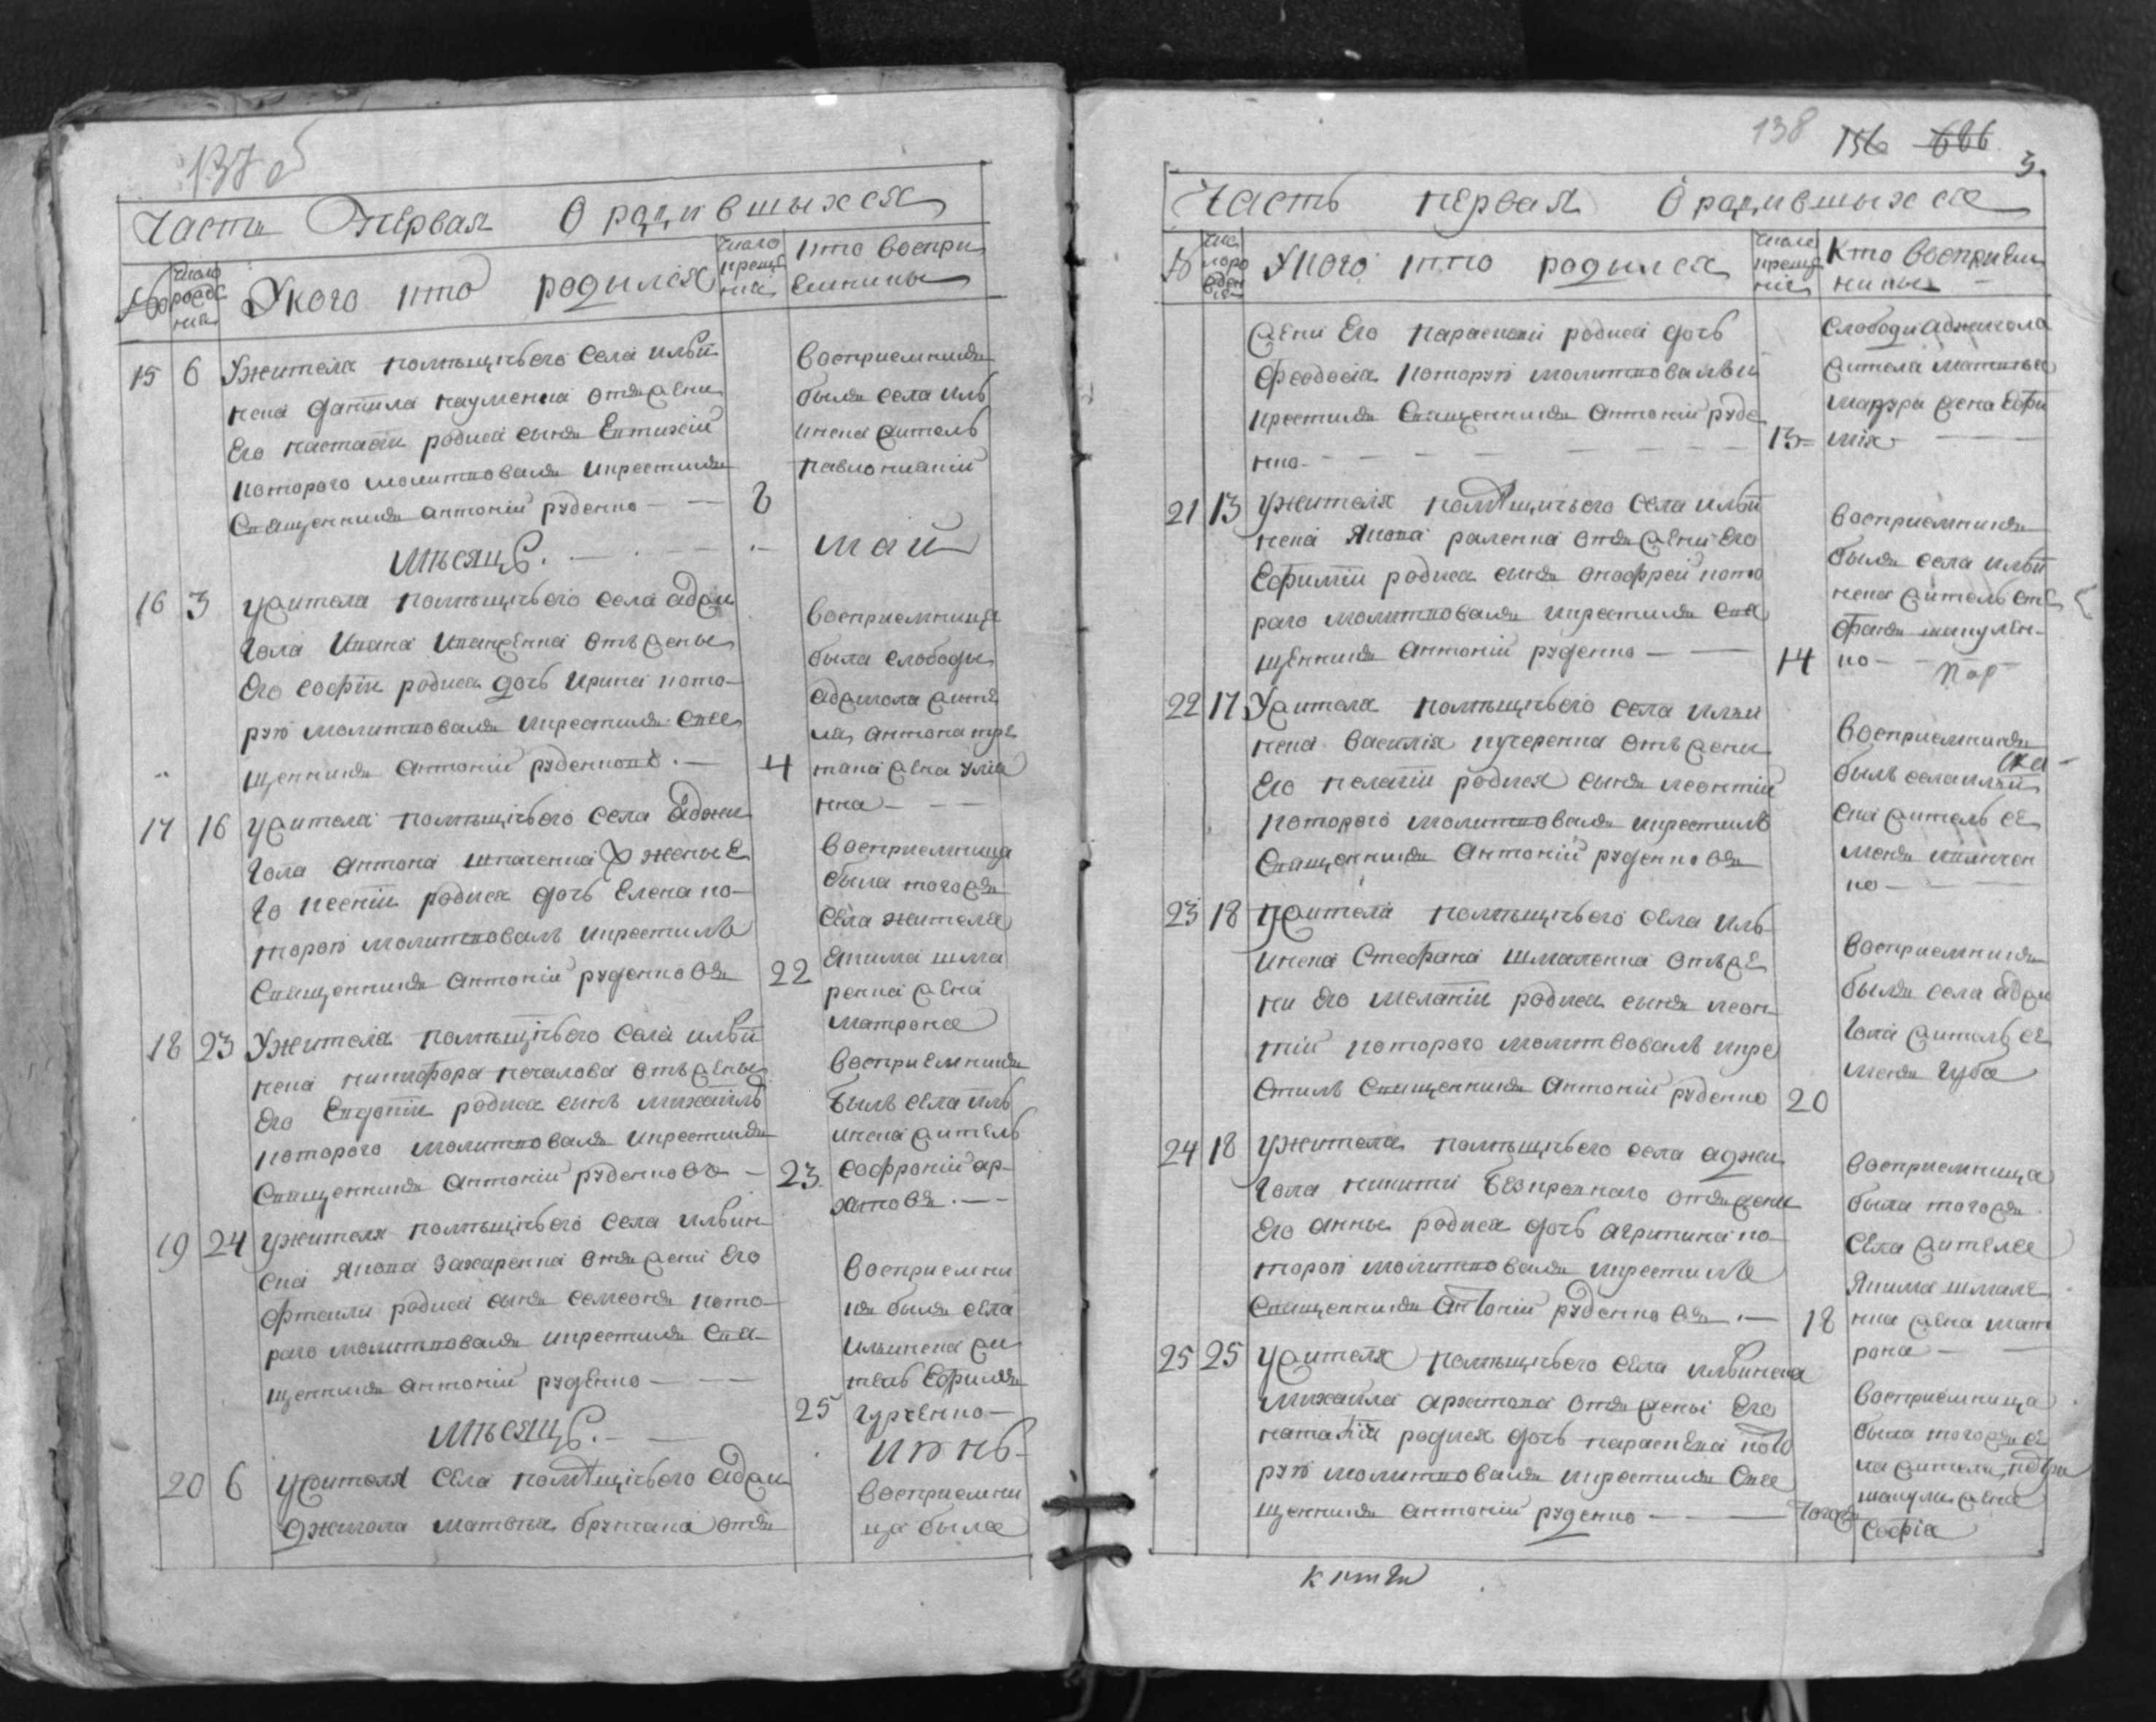 137 об
Часть Первая О родившыхся
№
Число рожде ния
У кого кто родился
Число креще ния
кто воспри емники
15 6 У жителя помѣщичьего села ильи
нска данила науменка отъ жени
Его настасіи родися сынъ Евтихій
которого молитвовалъ и крестилъ
Священникъ антоній руденко 8
восприемникъ
былъ села иль
инска житель
Мѣсяцъ. май
16 3 У жителя помѣщичьего села аджи
гола Ивана Иванченка отъ жены
Его софіи родися дочь Ирина кото
рую молитвовалъ и крестилъ Свя
щенникъ антоній руденковъ. 4
восприемница
была слободы
аджигола жите
ля антона
жена улія
нна
17 16 У жителя помѣщичьего села аджи
гола антона жены Е
го ксеніи родися дочь Елена ко
торою молитвовалъ и крестилъ
Священникъ антоній руденковъ 22
восприемница
была тогожъ
села жителя
якима шма
ренка жена
матрона
18 23 У жителя помѣщичьего села ильи
нска никифора качалова отъ жены
Его Евдокіи родися сынъ михаилъ
которого молитвовалъ и крестилъ
Священникъ антоній руденковъ 23
восприемникъ
былъ села иль
инска житель
софроній ар
хатовъ.
19 24 У жителя помѣщичьего села ильин
ска якова захаренка отъ жени Его
родися сынъ семеонъ кото
раго молитвовалъ и крестилъ Свя
щенникъ антоній руденко 25
восприемни
къ былъ села
ильинска жи
тель Ефимъ
гурченко
Мѣсяцъ. июнь
20 6 У жителя села помѣщичьего аджи
аджигола матвея бруткана отъ
восприемни
ца была
138 156 686
3.
Часть первая О родившыхся
№
Чис ло ро жден ія
У кого кто родился
Число креще нія
Кто восприем ники
жени Его параскеви родися дочь
феодосія которую молитвовалъ и
крестилъ Священникъ антоній руде
нко 13
слободи аджигола
жителя матвея
жена Ефи
мія
21 13 У жителя помѣщичьего села ильи
нска якова раленка отъ жени Его
Ефиміи родися сынъ онофрей кото
раго молитвовалъ и крестилъ Свя
щенникъ антоній руденко 14
восприемникъ
былъ села ильи
нска житель сте
фанъ шакулен
ко
22 17 У жителя помѣщичьего села ильи
нска василія кучеренка отъ жени
Его пелагіи родися сынъ леонтій
которого молитвовалъ и крестилъ
Священникъ антоній руденковъ
восприемникъ
былъ села ильи
ска житель се
менъ
ко
23 18 У жителя помѣщичьего села иль
инска Стефана шмаленка отъ же
ни Его меланіи родися сынъ леон
тій которого молитвовалъ и кре
стилъ Священникъ антоній руденко 20
восприемникъ
былъ села аджи
гола житель се
менъ губа
24 18 У жителя помѣщичьего села аджи
гола никити безкровнаго отъ жени
Его анны родися дочь агрипина ко
торою молитвовалъ и крестилъ
Священникъ антоній руденковъ. 18
восприемница
была тогожъ
села жителя
якима шмале
нка жена мат
рона
25 25 У жителя помѣщичьего села ильинска
михаила архатова отъ жены Его
наталіи родися дочь параскева кото
рую молитвовалъ и крестилъ Свя
щенникъ антоній руденко тогожъ
восприемница
была тогожъ се
ла жителя петра
шакули жена
софія